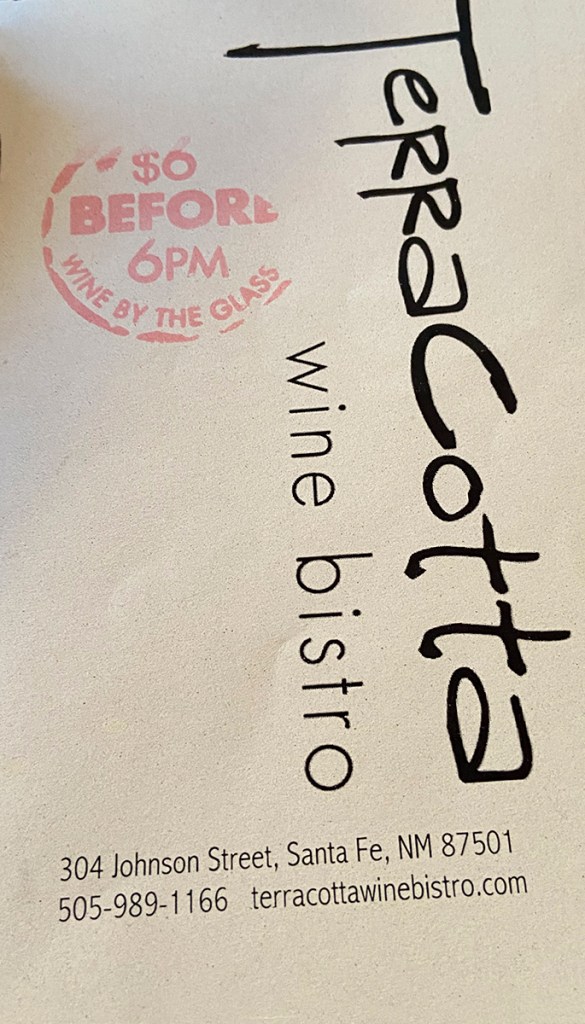 TerraCotta
wine bistro
$6
BEFORE
6PM
WINE BY THE GLASS
304 Johnson Street, Santa Fe, NM 87501
505-989-1166 terracottawinebistro.com